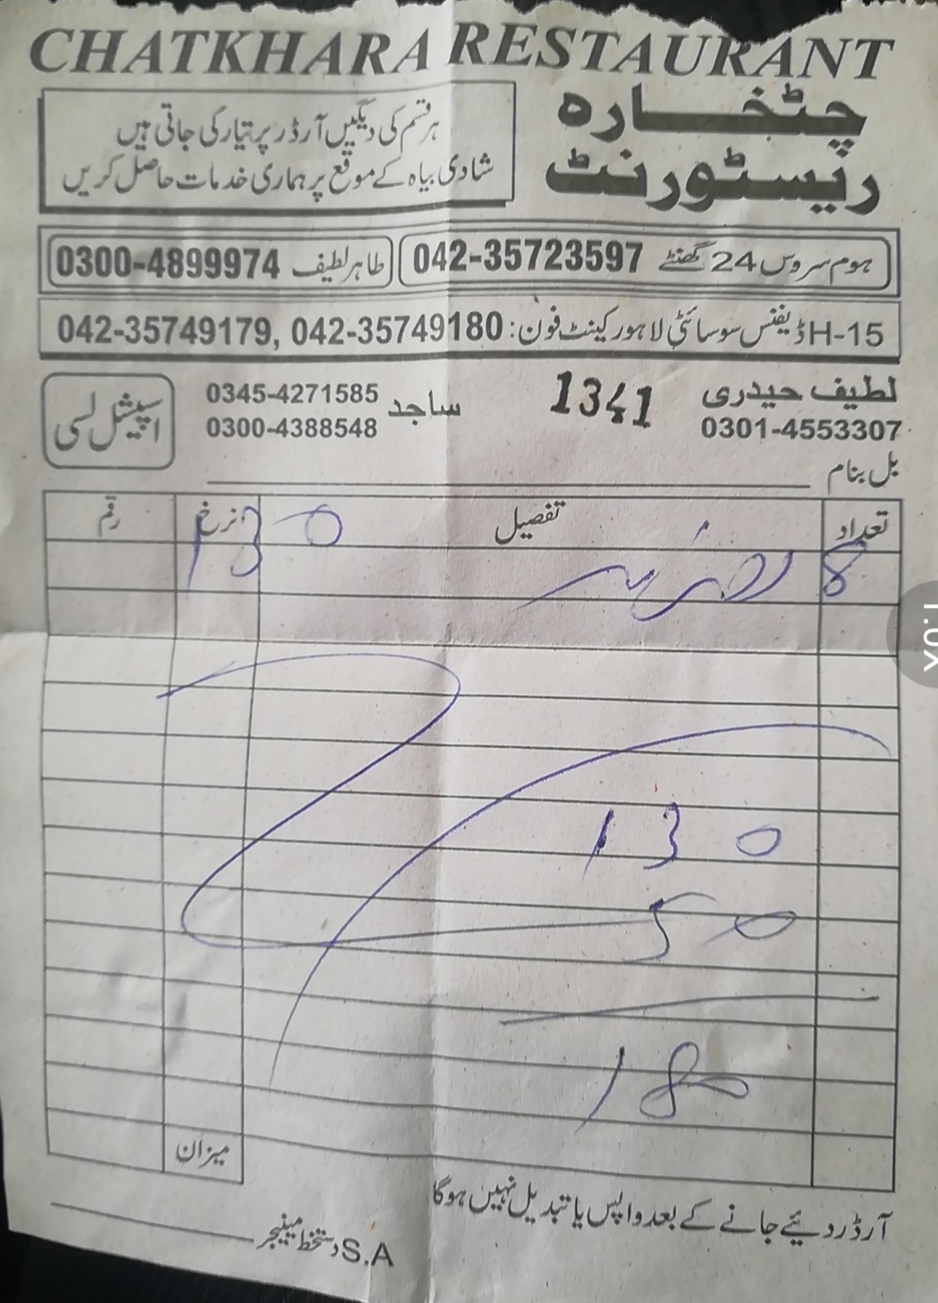 CHATKHARA RESTAURANT
چٹخارہ
ریسٹورنٹ
ہر قسم کی دیگیں آرڈر پر تیار کی جاتی ہیں
شادی بیاہ کے موقع پر ہماری خدمات حاصل کریں
ہوم سروس 24 گھنٹے 042-35723597
طاہر لطیف 0300-4899974
H-15 ڈیفنس سوسائٹی لاہور کینٹ فون: 042-35749179, 042-35749180
لطیف حیدری
0301-4553307
1341
ساجد 0345-4271585
0300-4388548
اسپیشل لسی
بل بنام
تعداد تفصیل نرخ رقم
8 130
130
50
180
میزان
آرڈر دئیے جانے کے بعد واپس یا تبدیل نہیں ہوگا
S.A دستخط مینیجر
1.0X